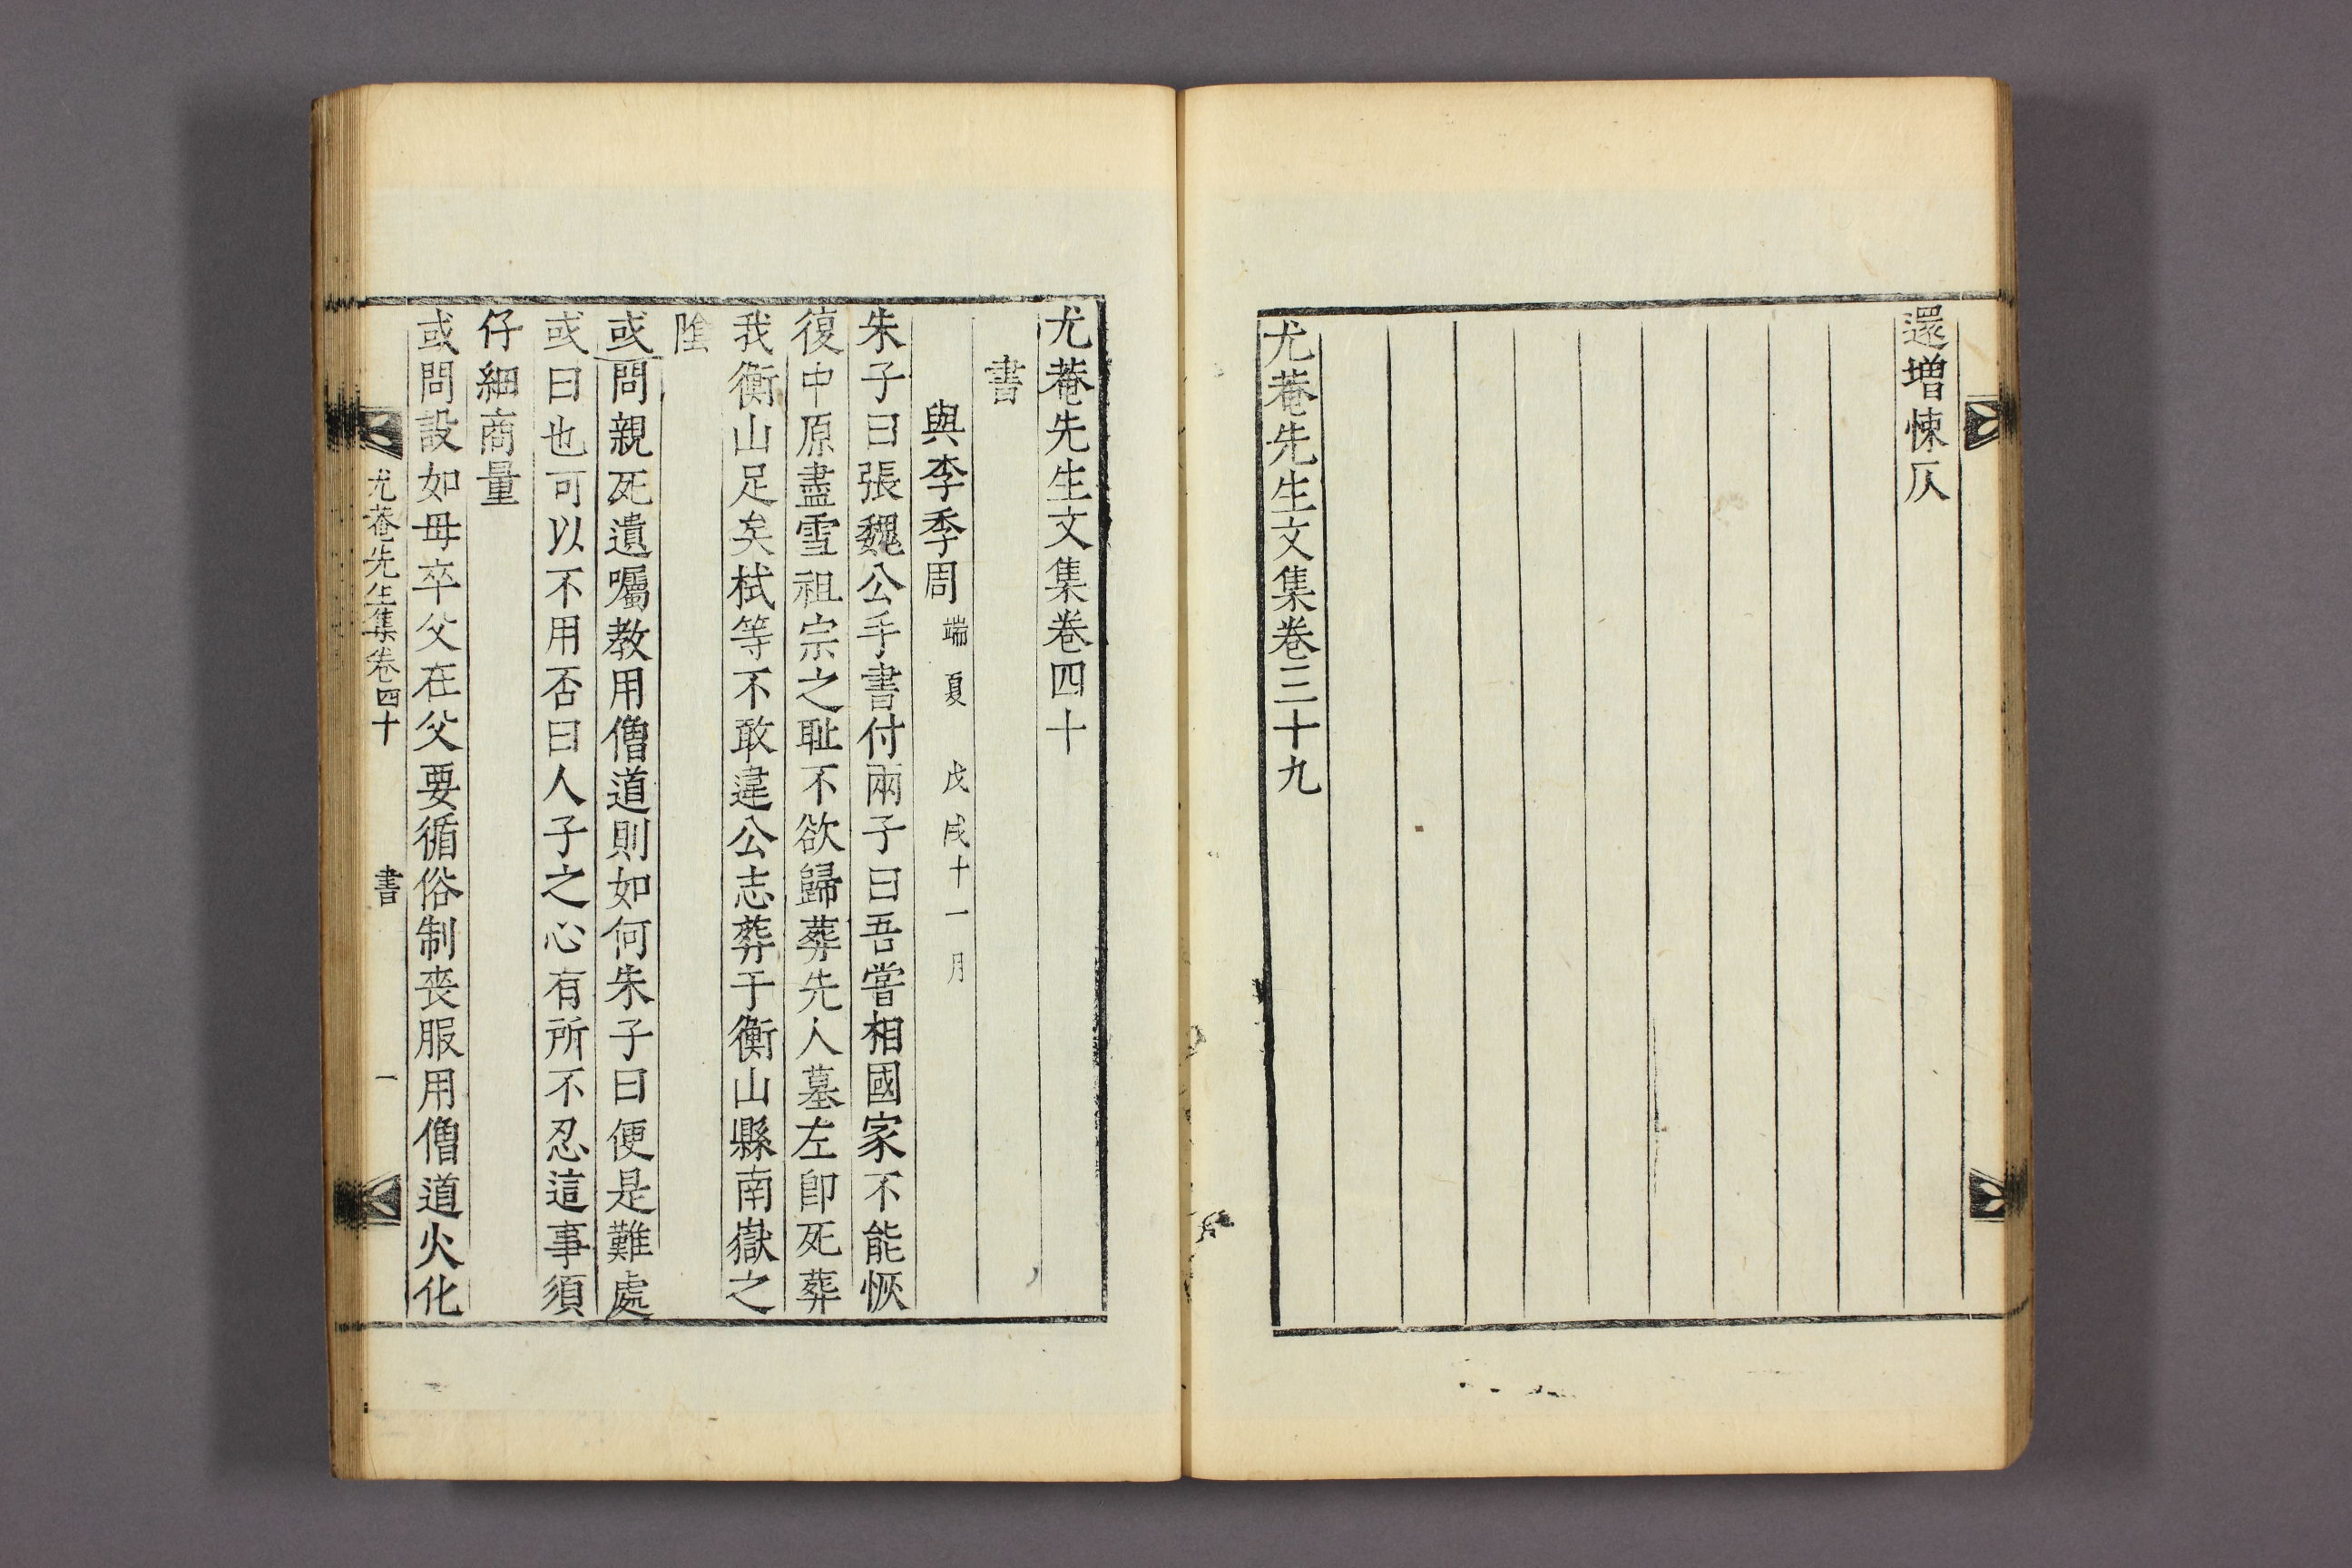 還增悚仄
尤菴先生文集卷三十九
尤菴先生文集卷四十
書
與李季周端夏 戊戌十一月
朱子曰張魏公手書付兩子曰吾嘗相國家不能恢
復中原盡雪祖宗之耻不欲歸葬先人墓左卽死葬
我衡山足矣栻等不敢違公志葬于衡山縣南嶽之
陰
或問親死遺囑教用僧道則如何朱子曰便是難處
或曰也可以不用否曰人子之心有所不忍這事須
仔細商量
或問設如母卒父在父要循俗制喪服用僧道火化
尤菴先生集卷四十 書 一